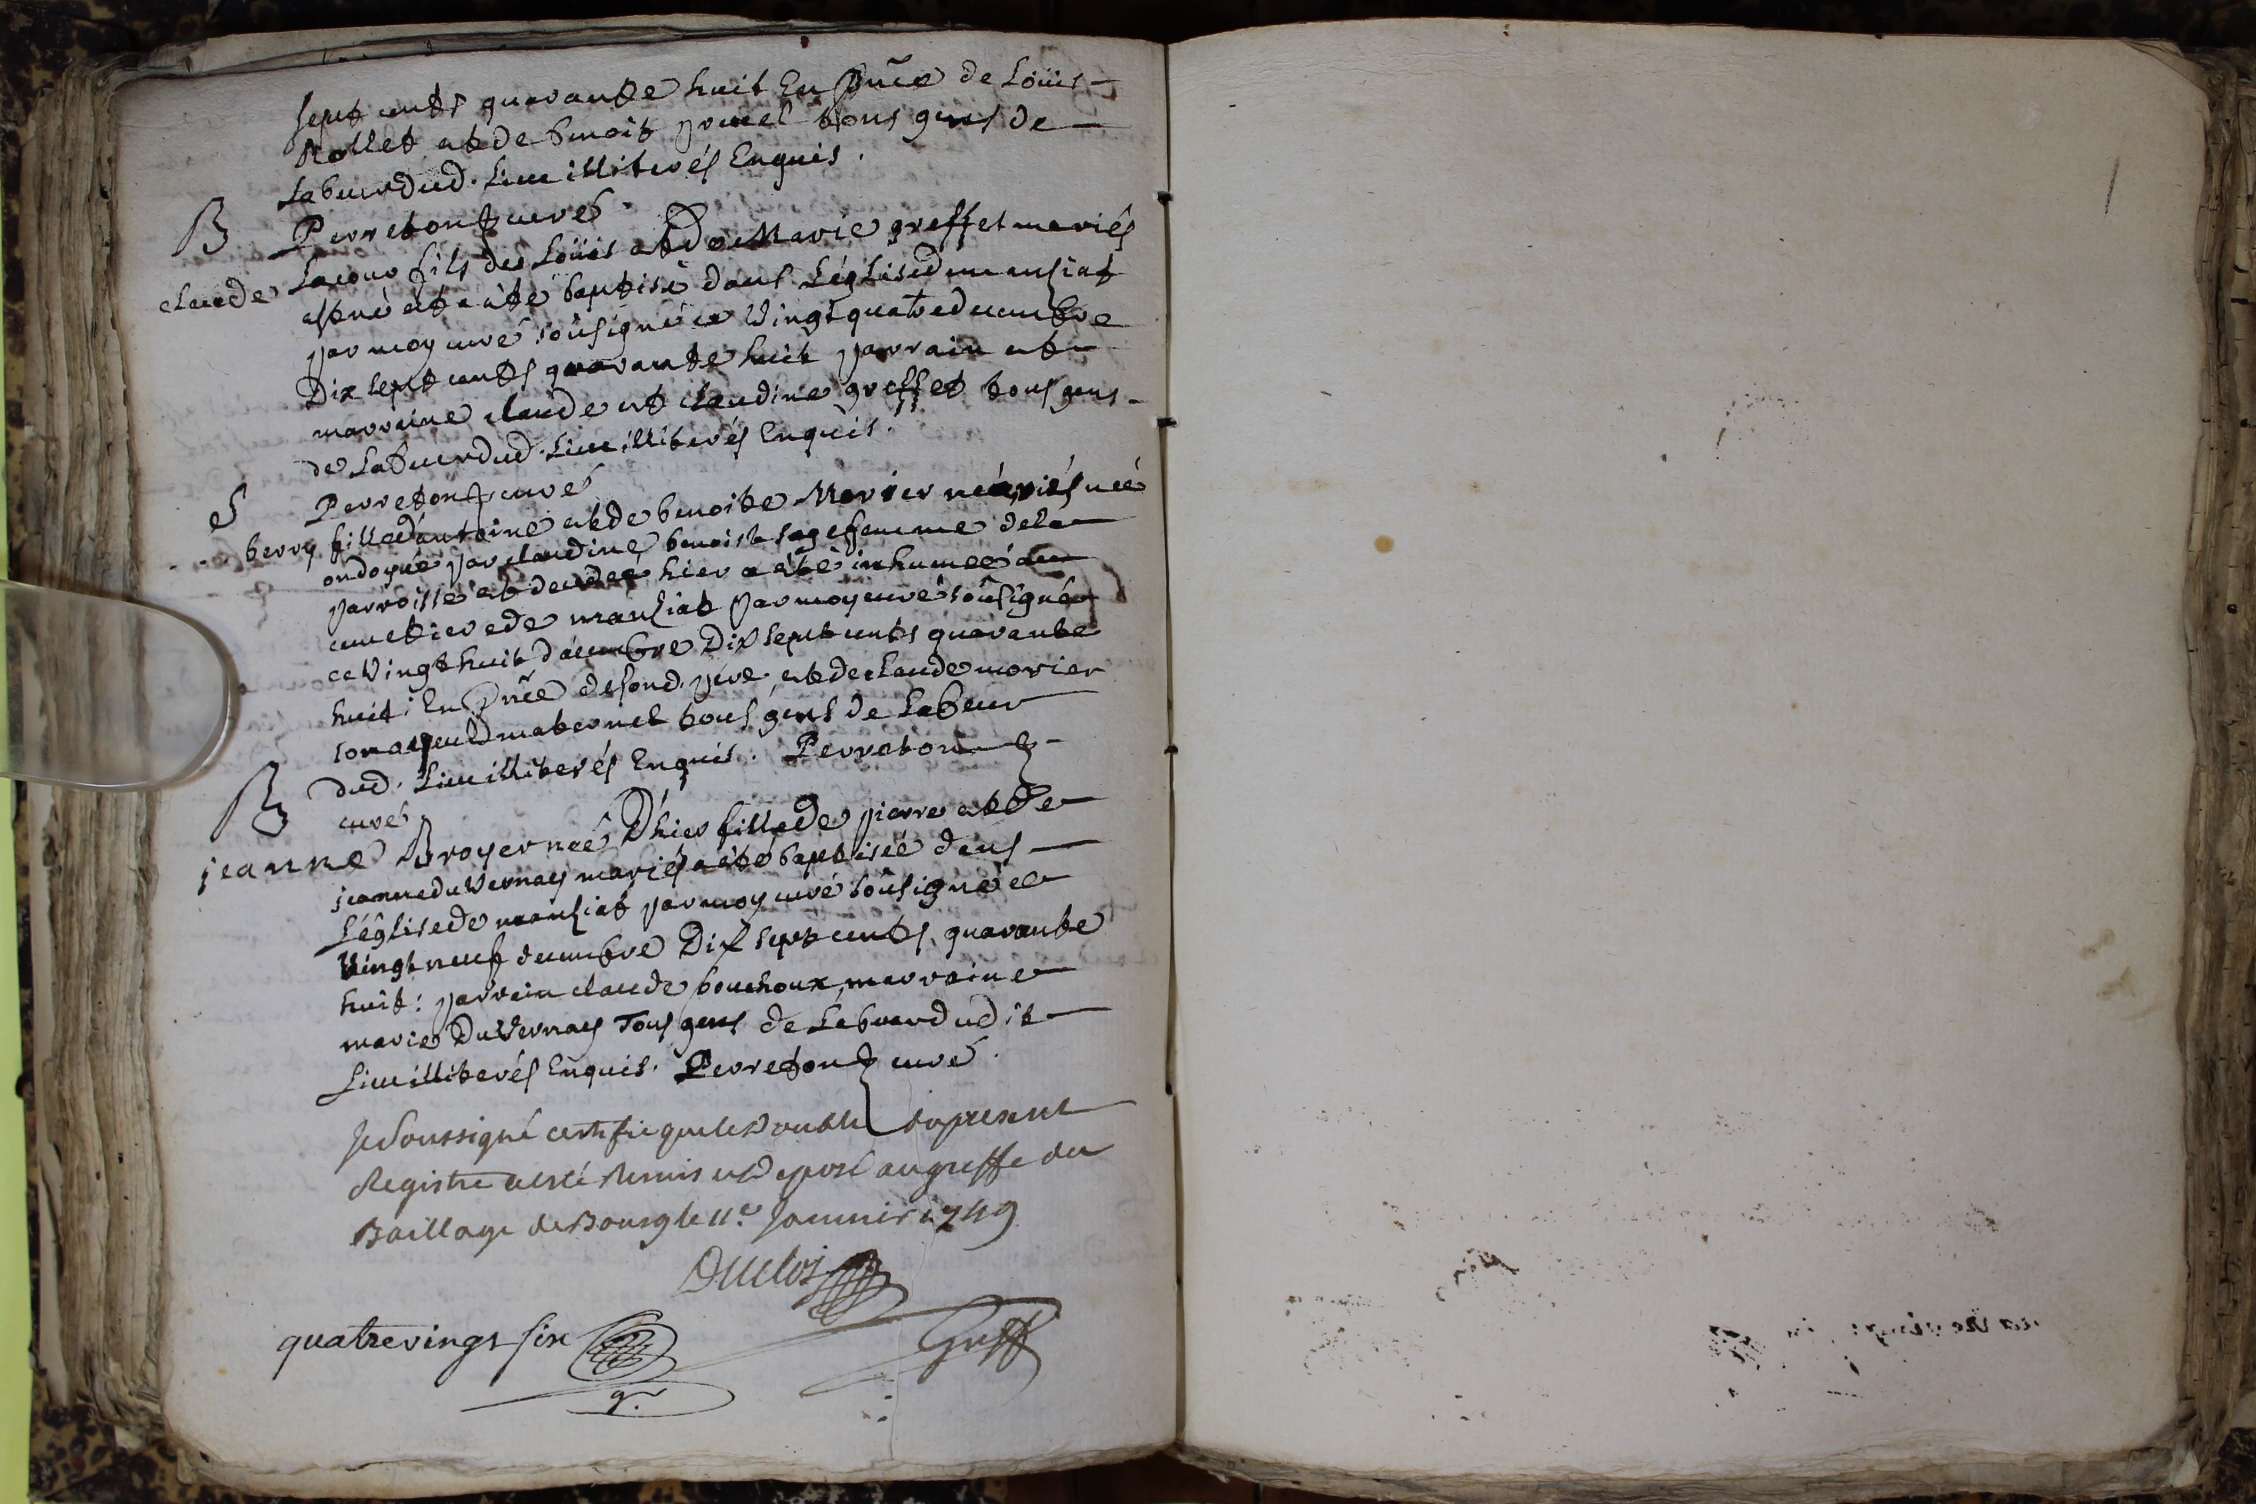 sept cents quarante huit En p̃nce de Loüis
Rollet et de benoit pruel tous gens de
labeur dud. Lieu illiterés Enquis.
Perreton curé
B
claude Lacour fils de Loüis et de Marie greffet mariés
est né et a été baptisé dans L'église de manziat
par moy curé soûsigné ce Vingt quatre decembre
Dix sept cents quarante huit parrain et
marraine claude et claudine greffet tous gens
de Labeur dud. Lieu illiterés Enquis.
Perreton curé
S
berry fille d'antoine et de benoite Morier mariés née
ondoyée par claudine benoist sagefemme de la
parroisse et decedée hier a été inhumée au
cimetiere de manziat par moy curé soûsigné
ce Vingt huit décembre Dix sept cents quarante
huit; En p̃nce de sond. pere, et de claude morier
son ayeul maternel tous gens de Labeur
dud. Lieu illiterés Enquis. Perreton
curé
B
jeanne Broyer née D'hier fille de pierre et de
jeanne du Vernay mariés a été baptisée dans
L'église de manziat par moy curé soûsigné ce
Vingt neuf decembre Dix sept cents quarante
huit: parrain claude bouchoux, marraine
marie Du Vernay Tous gens de Labeur dudit
Lieu illiterés Enquis. Perreton curé.
Je Soussigné certifie que le Double du present
Registre a esté Remis et deposé au greffe du
Baillage de Bourg le 11e. Janvier 1749
Duclos
Greff
quatrevingt six